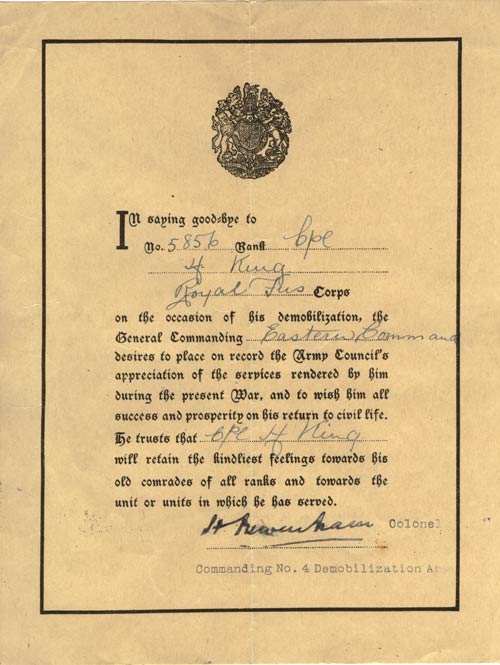 In saying good-bye to
No. 5856 Rank Cpl
H King
Royal Fus Corps
on the occasion of his demobilization, the
General Commanding Eastern Command
desires to place on record the Army Council's
appreciation of the services rendered by him
during the present War, and to wish him all
success and prosperity on his return to civil life.
He trusts that Cpl H King
will retain the kindliest feelings towards his
old comrades of all ranks and towards the
unit or units in which he has served.
Colonel
Commanding No. 4 Demobilization Ar